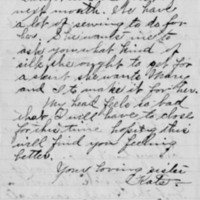 next month. She has
a lot of sewing to do for
her. She wants me to
ask you what kind of
silk she ought to get for
a skirt she wants Marie
and I to make it for her.
My head feels so bad
that I will have to close
for this time hoping this
will find you feeling
better.
Your loving sister
Kate.